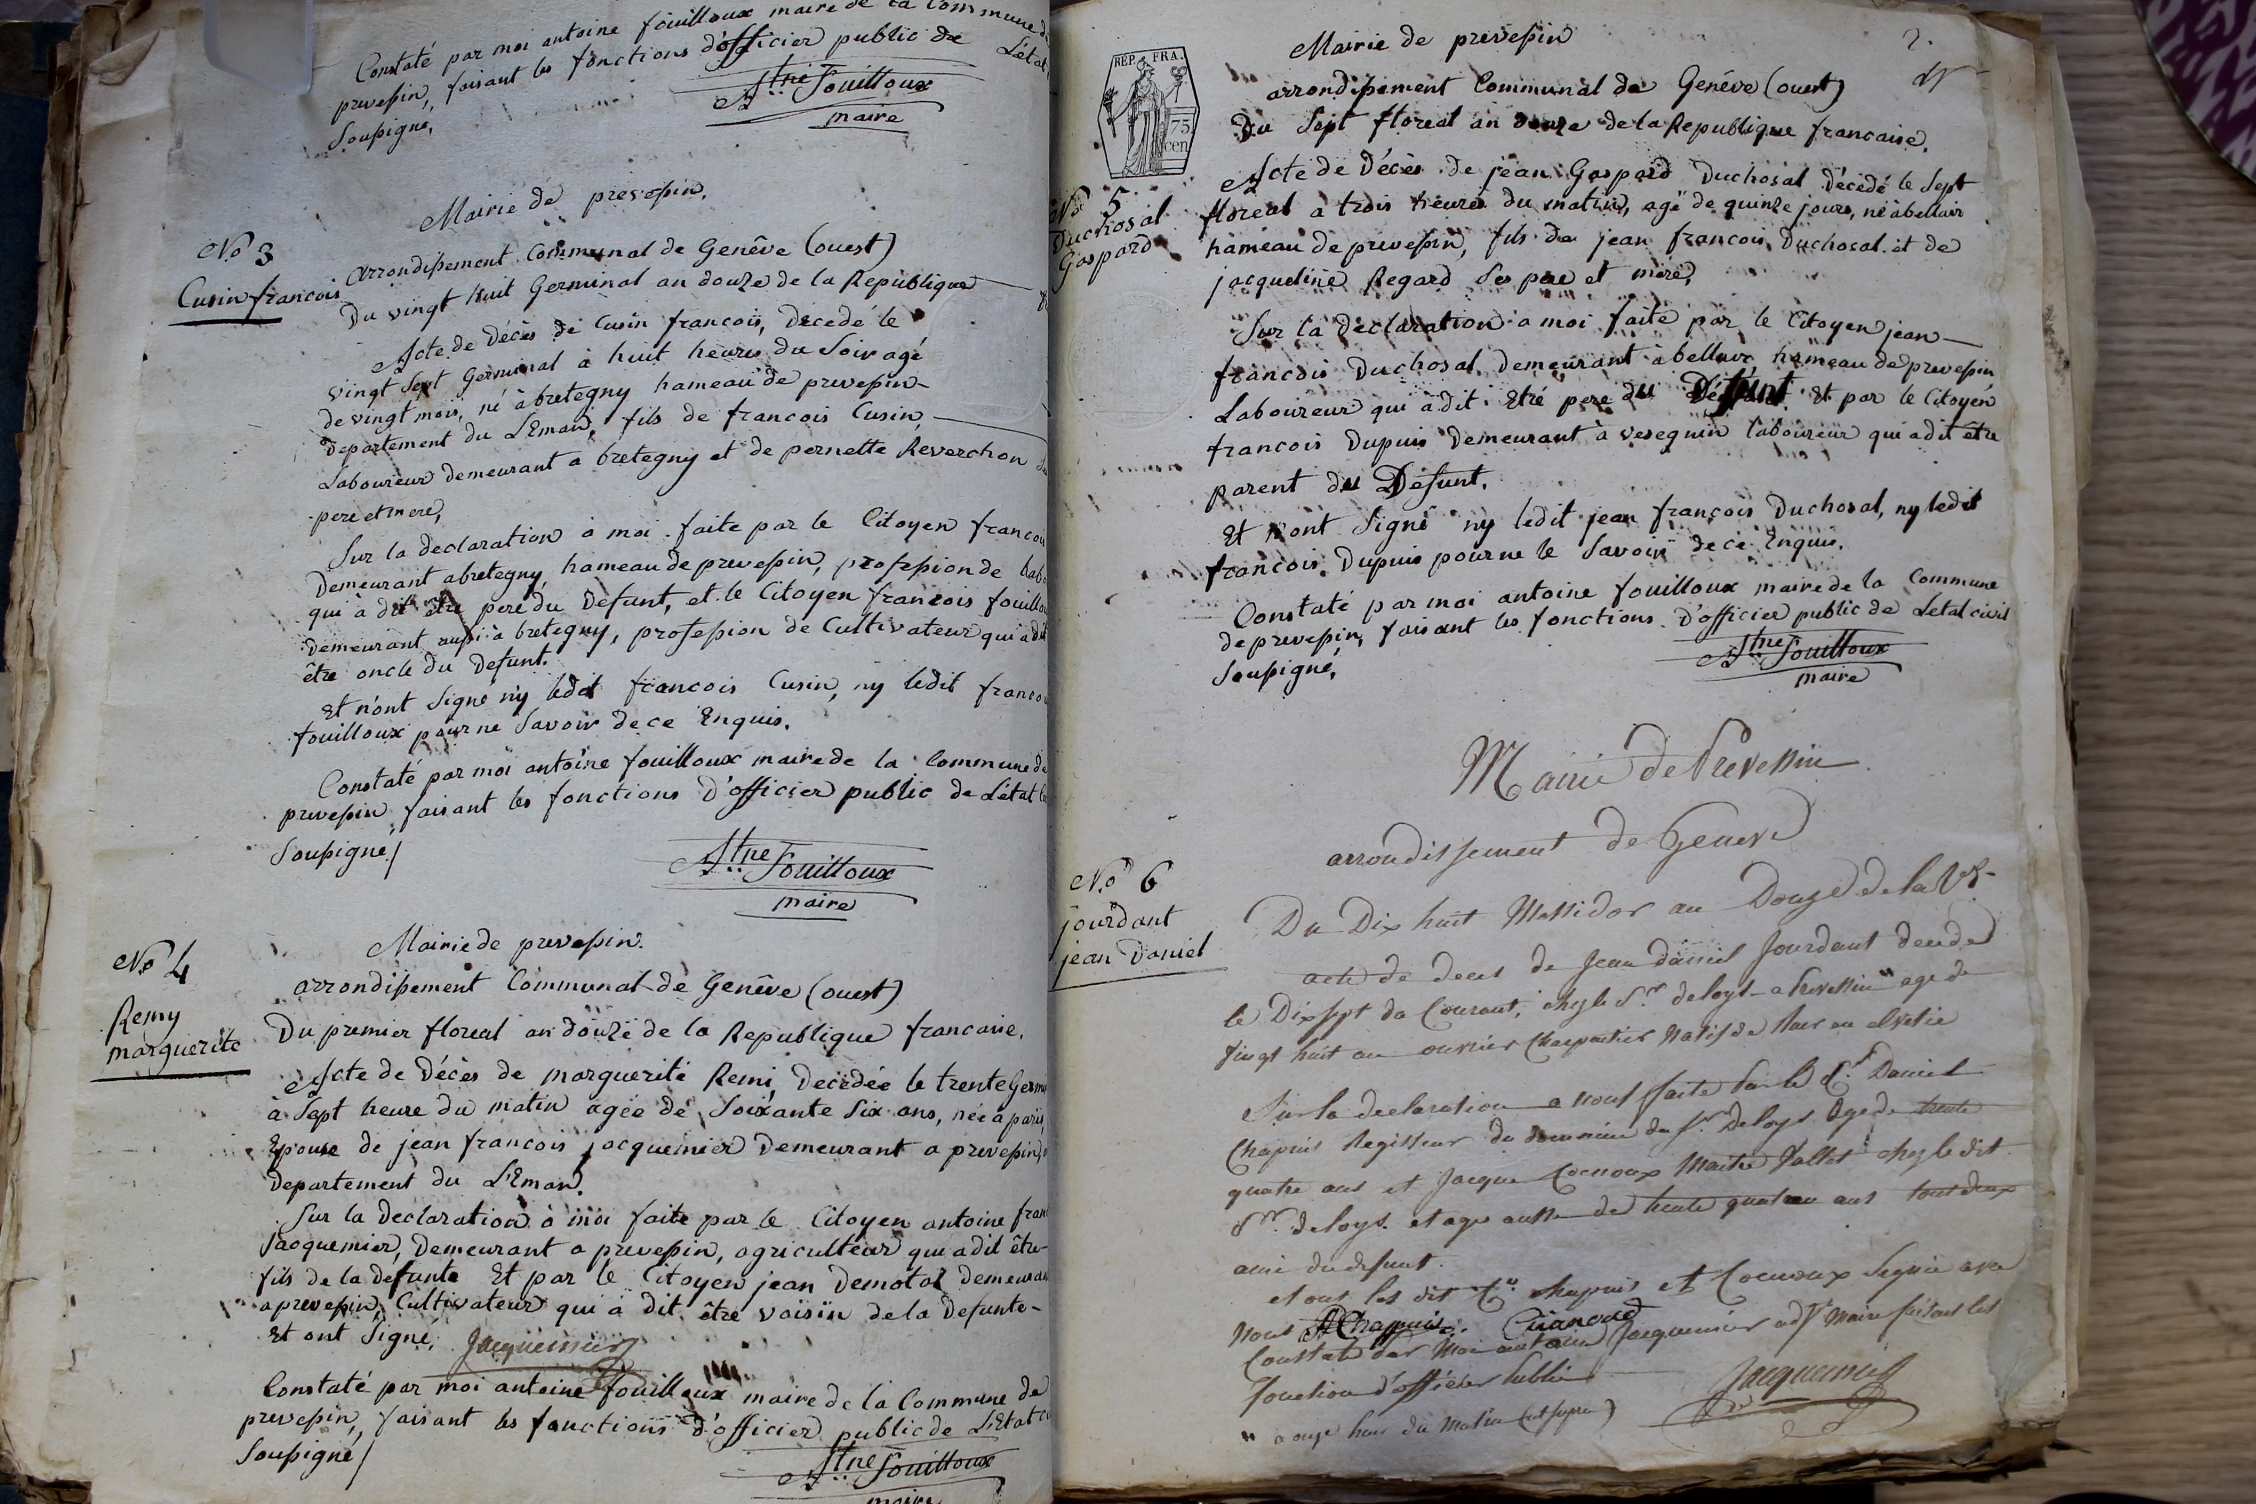 Constaté par moi antoine fouilloux maire de la Commune de
prevessin, faisant les fonctions d'officier public de L'état
Soussigné,
Atne Fouilloux
maire
Mairie de prevessin,
No 3
Cusin francois
arrondissement Communal de Genêve (ouest)
Du vingt huit Germinal an douze de la Republique
Acte de Décès de Cusin francois, Decedé le
vingt Sept Germinal à huit heures du Soir agé
de vingt mois, né à bretegny hameau de prevessin
Departement du LEman, fils de francois Cusin,
Laboureur demeurant a bretegny et de pernette Reverchon
pere et mere,
Sur la declaration à moi faite par le Citoyen francois
Demeurant a bretegny, hameau de prevessin, profession de Lab
qui à dit être pere du Defunt, et le Citoyen francois fouillou
demeurant aussi à bretegny, profession de Cultivateur qui a dit
être oncle du Defunt.
Et n'ont Signé n'y ledit francois Cusin, ny ledit franco
fouilloux pour ne Savoir de ce Enquis.
Constaté par moi antoine fouilloux maire de la Commune de
prevessin, faisant les fonctions d'officier public de L'état
Soussigné/
Atne Fouilloux
maire
No 4
Remy
marguerite
Mairie de prevessin.
arrondissement Communal de Genêve (ouest)
Du premier floreal an douze de la Republique francaise.
Acte de Décès de marguerite Remi, Decédée le trente Germ
à Sept heure du matin agée de Soixante Six ans, née à paris,
Epouse de jean francois jacquemier Demeurant a prevessin,
Departement du LEman.
Sur la declaration à moi faite par le Citoyen antoine fran
Jacquemier, Demeurant a prevessin, agriculteur qui a dit être
fils de la defunte Et par le Citoyen jean Demotal demeurant
a prevessin, Cultivateur qui a dit être voisin de la Defunte
Et ont Signé. Jacquemier
Constaté par moi antoine fouilloux maire de la Commune de
prevessin, faisant les fonctions d'officier public de L'Etat
Soussigné/
Atne Fouilloux
maire
2.
REP. FRA.
75
cen
Mairie de prevessin
arrondissement Communal de Genêve (ouest)
Du Sept floreal an douze de la Republique francaise.
No 5
Duchosal
Gaspard
Acte de Décès de jean Gaspard Duchosal Décedé le Sept
floreal a trois heures du matin, agé de quinze jours, né à bellair
hameau de prevessin, fils de jean francois Duchosal et de
jacqueline Regard Ses pere et mere,
Sur la declaration a moi faite par le Citoyen jean
francois Duchosal Demeurant à bellair hameau de prevessin
Laboureur qui à dit Etre pere du Défunt Et par le Citoyen
francois Dupuis Demeurant à vesegnin laboureur qui a dit être
parent du Défunt.
Et n'ont Signé ny ledit jean francois Duchosal, ny ledit
francois Dupuis pour ne le Savoir de ce Enquis.
Constaté par moi antoine fouilloux maire de la Commune
de prevessin, faisant les fonctions d'officier public de Letat civil
Soussigné,
Atne Fouilloux
maire
Mairie de Prevessin
arrondissement de Geneve
No 6
jourdant
jean Daniel
Du Dix huit Messidor an Douze de la
acte de deces de Jean daniel Jourdant decedé
le Dix sept du Courant, chez le Sr deloys a Prevessin " age de
vingt huit an ouvrier Charpentier Natif de
Sur la declaration a nous faite par le Cn Daniel
Chapuis Regisseur du domaine du Sr Deloys Age de trente
quatre ans et Jacque Coenoux Maitre Vallet chez le dit
Sr deloys. et age aussi de trente quatre ans tout deux
ami du defunt.
et ont les dit Cn chapuis et Coenoux Signé avec
Nous DChappuis. Cuanoud
Constaté par Moi antoine Jacquemier adjt Maire faisant les
fonction d'officier Public
Jacquemier
" a onze heur du Matin (ut supra)